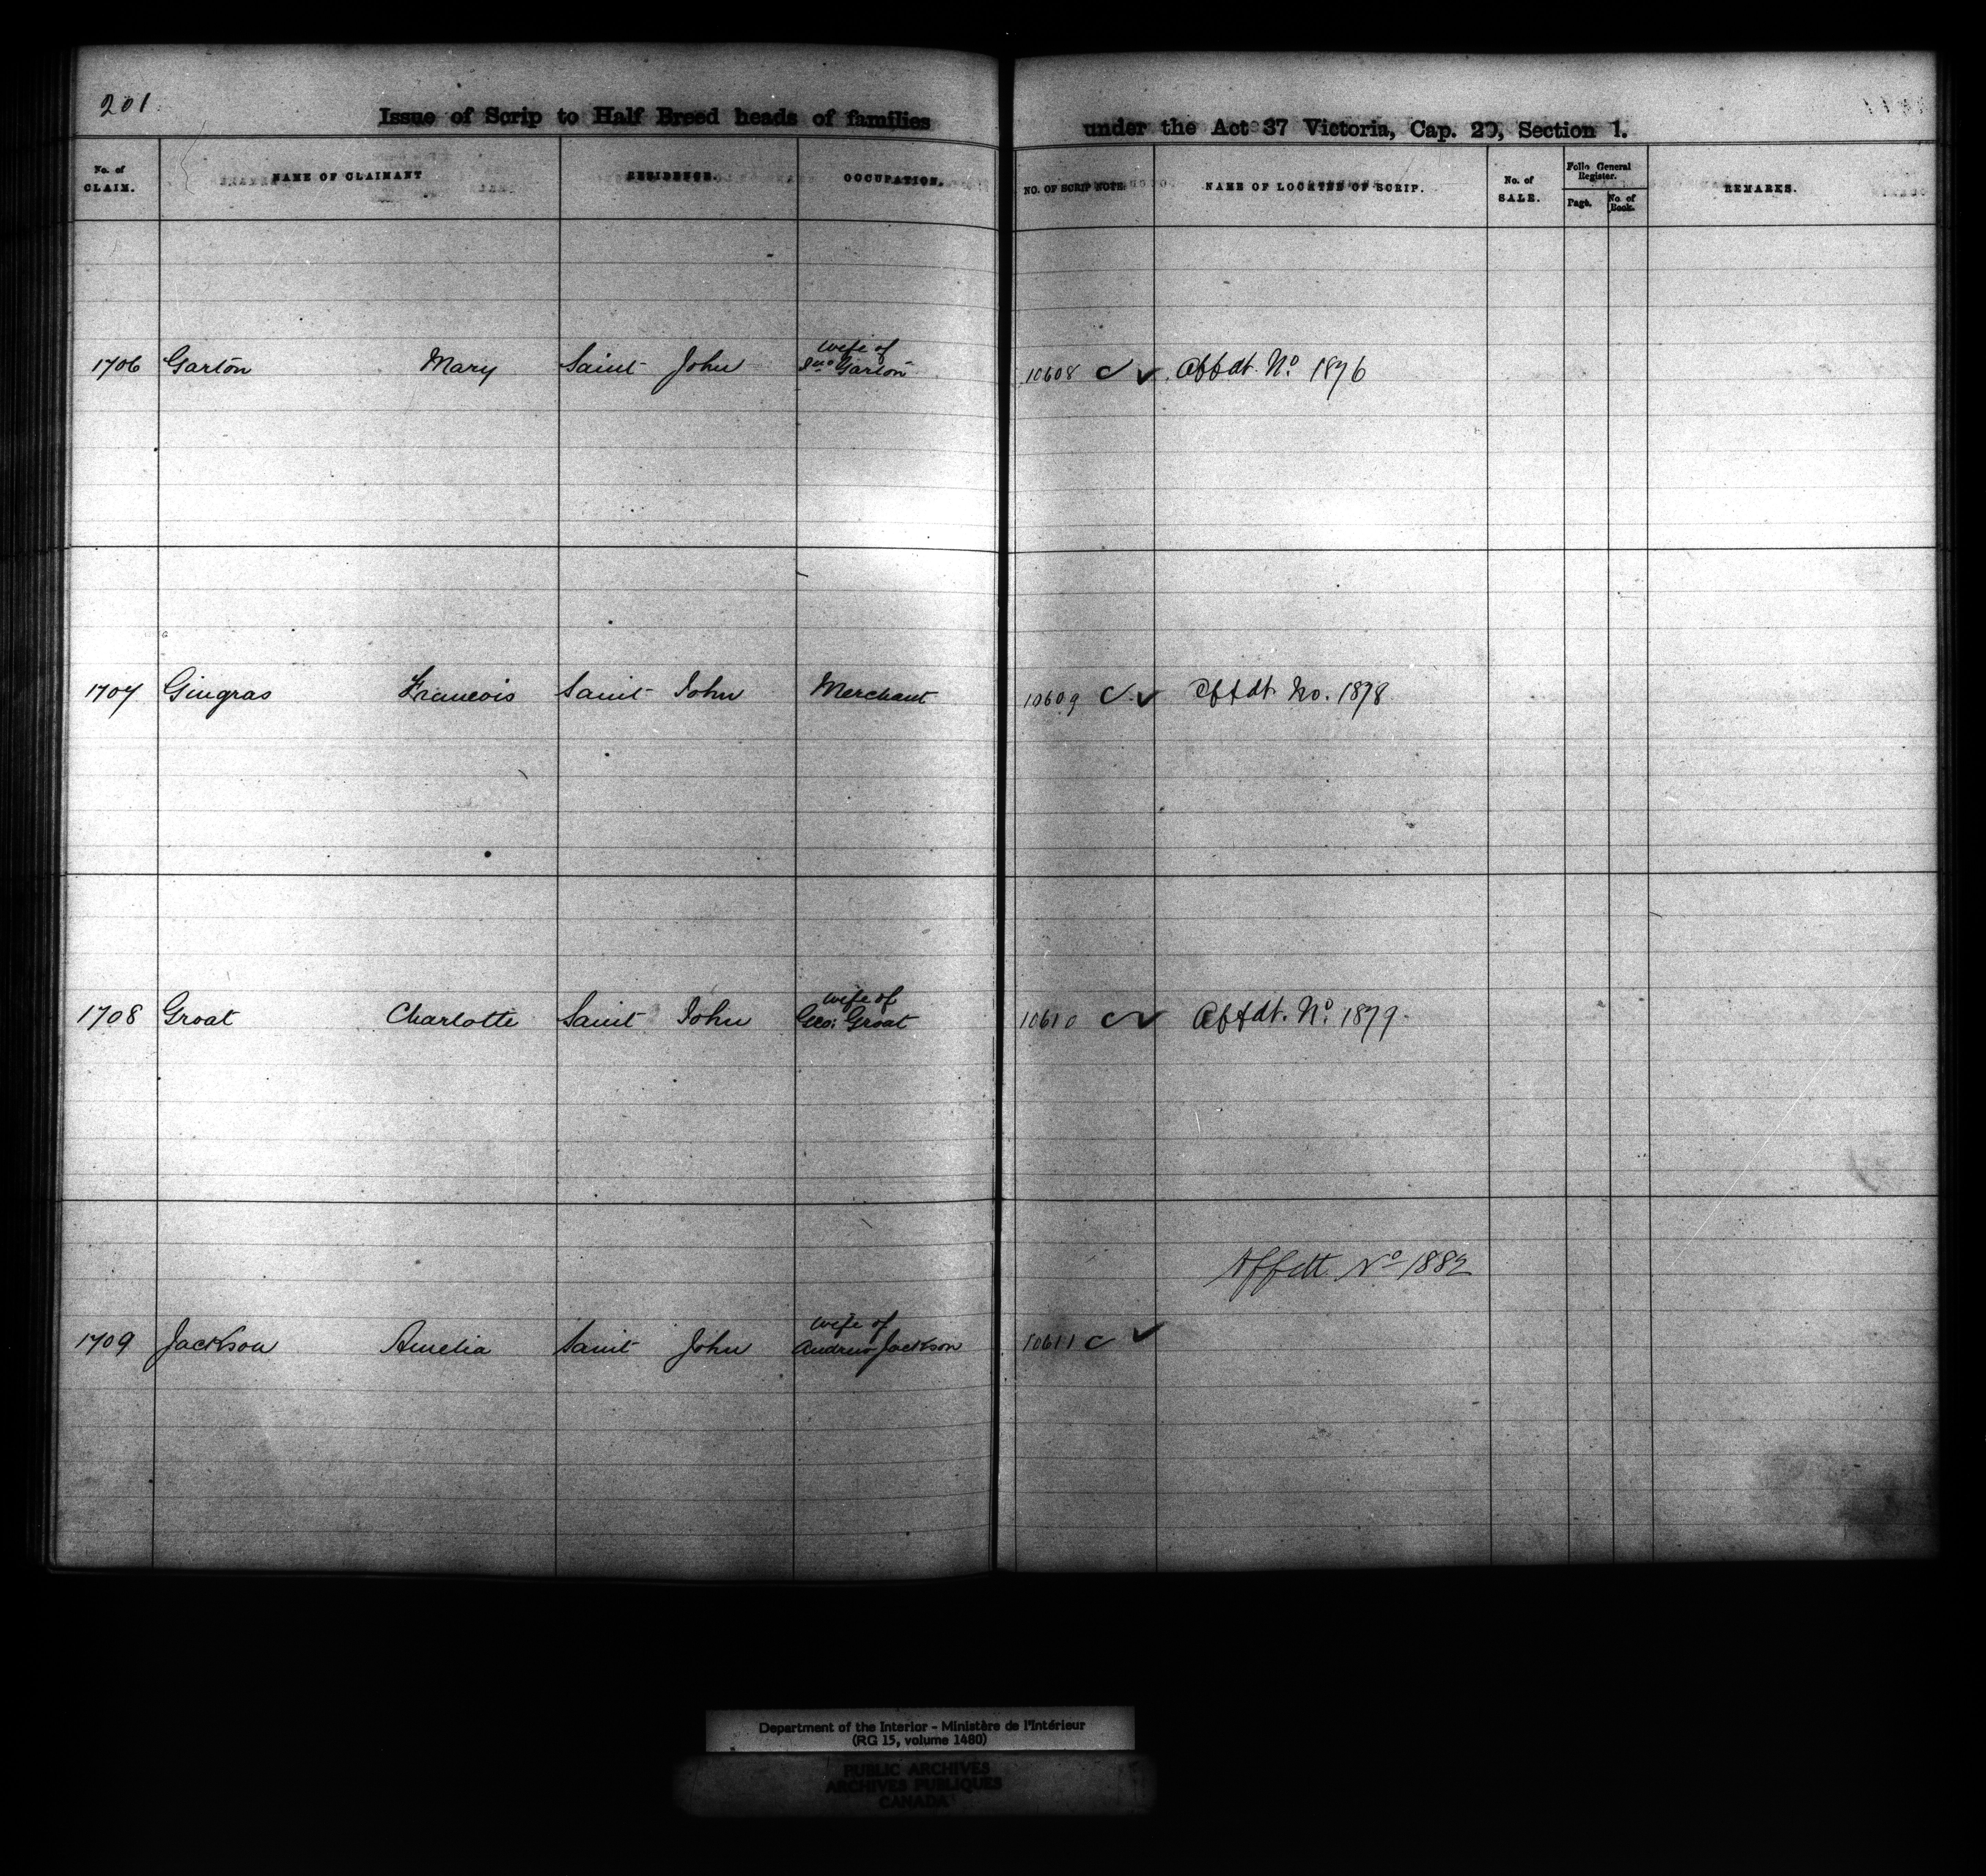 201
Issue of Scrip to Half Breed heads of families under the Act 37 Victoria, Cap. 20, Section 1.
No. of CLAIM. NAME OF CLAIMANT RESIDENCE. OCCUPATION. NO. OF SCRIP NOTE. NAME OF LOCATEE OF SCRIP. No. of SALE. Folio General Register. Page. No. of Book. REMARKS.
wife of
1706 Garton Mary Saint John Jno Garton 10608 Affdt. No. 1876
1707 Gingras Francois Saint John Merchant 10609 Affdt. No. 1878
wife of
1708 Groat Charlotte Saint John Geo: Groat 10610 Affdt. No. 1879
Affdtt No 1882
wife of
1709 Jackson Amelia Saint John Andrew Jackson 10611
Department of the Interior - Ministère de l'Intérieur
(RG 15, volume 1480)
PUBLIC ARCHIVES
ARCHIVES PUBLIQUES
CANADA